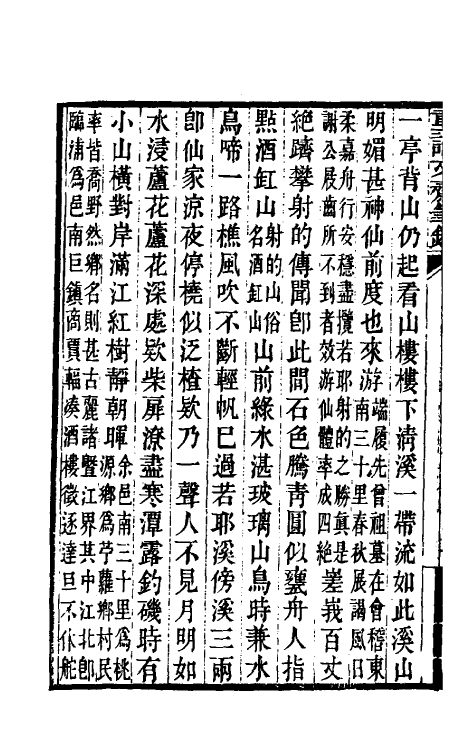 重論文齋筆錄
一亭背山仍起看山樓樓下淸溪一帶流如此溪山
明媚甚神仙前度也來游
端履先曾祖墓在會稽東
南三十里春秋展謁風日
柔嘉舟行安穩盡攬若耶射的之勝眞是
謝公屐齒所不到者效游仙體率成四絕
嵳峩百丈
絕躋攀射的傳聞卽此間石色騰青圓似甕舟人指
點酒缸山
射的山俗
名酒缸山
山前綠水湛玻璃山鳥時兼水
鳥啼一路樵風吹不斷輕帆已過若耶溪傍溪三兩
卽仙家涼夜停橈似泛楂欵乃一聲人不見月明如
水浸蘆花蘆花深處欵柴扉潦盡寒潭露釣磯時有
小山橫對岸滿江紅樹靜朝暉
余邑南三十里爲桃
源鄉爲苧蘿鄉村民
率皆喬野然鄉名則甚古麗諸曁江界其中江北卽
臨浦爲邑南巨鎭商賈輻湊酒樓徵逐達旦不休舵